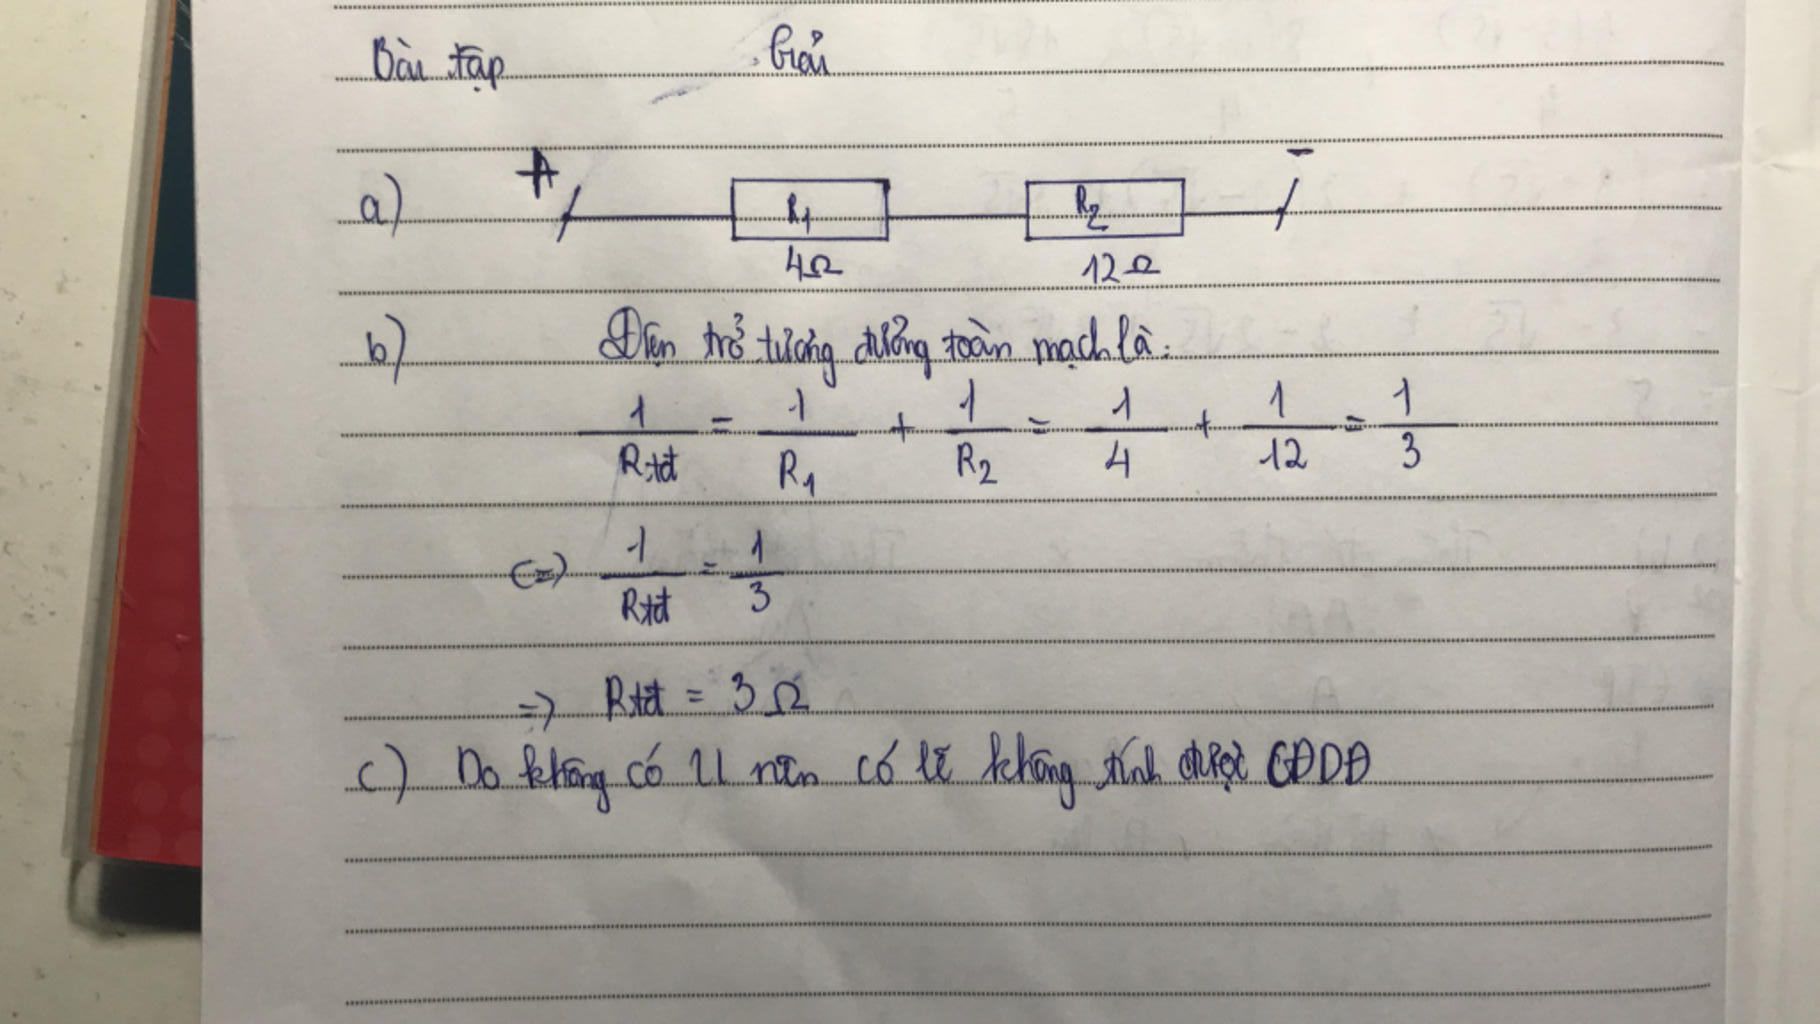 Bài tập Giải
a) + A R1 R2 -
4Ω 12Ω
b) Điện trở tương đương toàn mạch là:
1/Rtđ = 1/R1 + 1/R2 = 1/4 + 1/12 = 1/3
<=> 1/Rtđ = 1/3
=> Rtđ = 3Ω
c) Do không có U nên có lẽ không tính được CĐDĐ